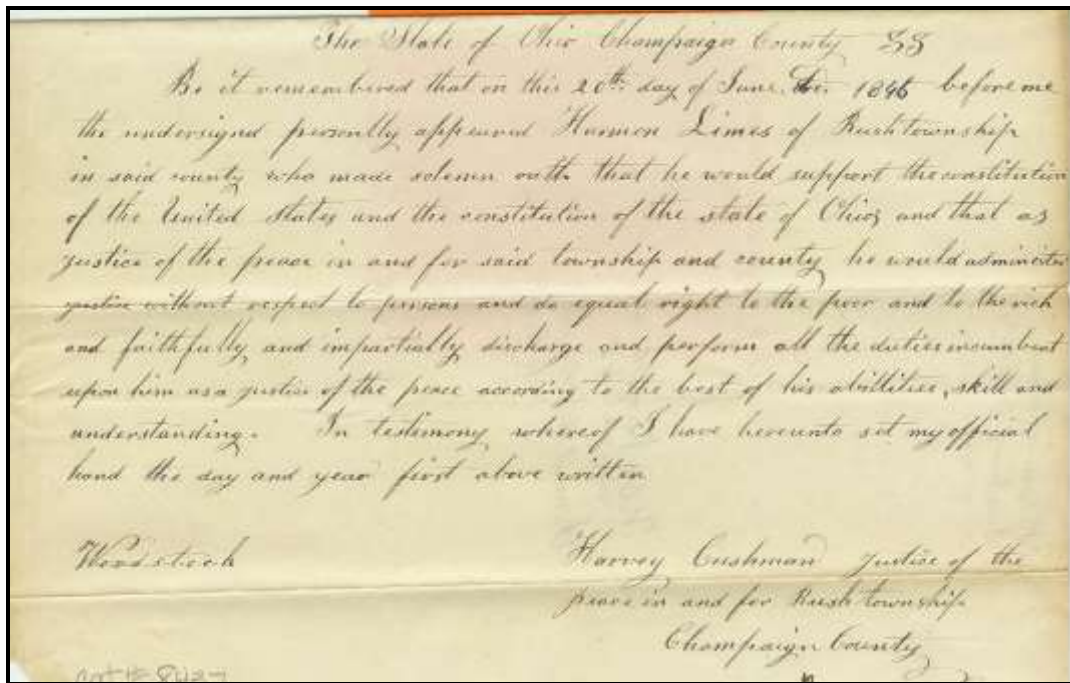 The State of Ohio Champaign County SS
Be it remembered that on this 20th day of June 1846 before me
the undersigned personlly appeared Harmon Limes of Rush township
in said county who made solemn oath that he would support the constitution
of the United States and the constitution of the state of Ohio, and that as
justice of the peace in and for said township and county he would administer
justice without respect to persons and do equal right to the poor and to the rich
and faithfully and impartially discharge and perform all the duties incumbent
upon him as a justice of the peace according to the best of his abillities, skill and
understanding. In testimony whereof I have hereunto set my official
hand the day and year first above written
Woodstock
Harvey Cushman Justice of the
peace in and for Rush township
Champaign County